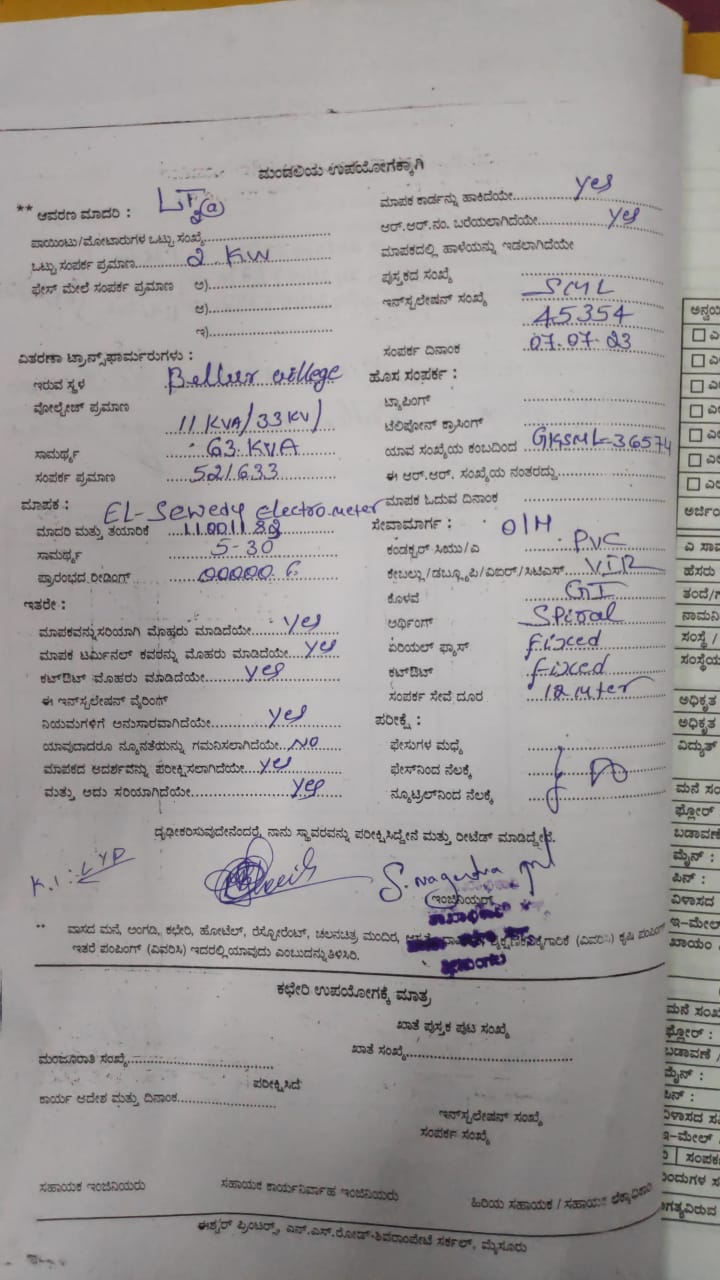 ಮಂಡಲಿಯ ಉಪಯೋಗಕ್ಕಾಗಿ
** ಆವರಣ ಮಾದರಿ : LT
ಪಾಯಿಂಟು/ಮೋಟಾರುಗಳ ಒಟ್ಟು ಸಂಖ್ಯೆ
ಒಟ್ಟು ಸಂಪರ್ಕ ಪ್ರಮಾಣ 2 KW
ಫೇಸ್ ಮೇಲೆ ಸಂಪರ್ಕ ಪ್ರಮಾಣ ಅ)
ಆ)
ಇ)
ವಿತರಣಾ ಟ್ರಾನ್ಸ್‌ಫಾರ್ಮರುಗಳು :
ಇರುವ ಸ್ಥಳ Bellur village
ವೋಲ್ಟೇಜ್ ಪ್ರಮಾಣ 11 KVA/33KV/
ಸಾಮರ್ಥ್ಯ 63 KVA
ಸಂಪರ್ಕ ಪ್ರಮಾಣ 521633
ಮಾಪಕ : EL-Sewedy electrometer
ಮಾದರಿ ಮತ್ತು ತಯಾರಿಕೆ
ಸಾಮರ್ಥ್ಯ 5-30
ಪ್ರಾರಂಭದ ರೀಡಿಂಗ್ 00000
ಇತರೇ :
ಮಾಪಕವನ್ನು ಸರಿಯಾಗಿ ಮೊಹರು ಮಾಡಿದೆಯೇ yes
ಮಾಪಕ ಟರ್ಮಿನಲ್ ಕವರನ್ನು ಮೊಹರು ಮಾಡಿದೆಯೇ yes
ಕಟ್‌ಔಟ್ ಮೊಹರು ಮಾಡಿದೆಯೇ yes
ಈ ಇನ್‌ಸ್ಟಲೇಷನ್ ವೈರಿಂಗ್
ನಿಯಮಗಳಿಗೆ ಅನುಸಾರವಾಗಿದೆಯೇ yes
ಯಾವುದಾದರೂ ನ್ಯೂನತೆಯನ್ನು ಗಮನಿಸಲಾಗಿದೆಯೇ NO
ಮಾಪಕದ ಆದರ್ಶವನ್ನು ಪರೀಕ್ಷಿಸಲಾಗಿದೆಯೇ yes
ಮತ್ತು ಅದು ಸರಿಯಾಗಿದೆಯೇ yes
ಮಾಪಕ ಕಾರ್ಡನ್ನು ಹಾಕಿದೆಯೇ yes
ಆರ್.ಆರ್.ನಂ. ಬರೆಯಲಾಗಿದೆಯೇ yes
ಮಾಪಕದಲ್ಲಿ ಹಾಳೆಯನ್ನು ಇಡಲಾಗಿದೆಯೇ
ಪುಸ್ತಕದ ಸಂಖ್ಯೆ
ಇನ್‌ಸ್ಟಲೇಷನ್ ಸಂಖ್ಯೆ SML
45354
ಸಂಪರ್ಕ ದಿನಾಂಕ 07.07.23
ಹೊಸ ಸಂಪರ್ಕ :
ಟ್ಯಾಪಿಂಗ್
ಟೆಲಿಪೋನ್ ಕ್ರಾಸಿಂಗ್
ಯಾವ ಸಂಖ್ಯೆಯ ಕಂಬದಿಂದ GKSML-36574
ಈ ಆರ್.ಆರ್. ಸಂಖ್ಯೆಯ ನಂತರದ್ದು
ಮಾಪಕ ಓದುವ ದಿನಾಂಕ
ಸೇವಾಮಾರ್ಗ : O/H
ಕಂಡಕ್ಟರ್ ಸಿಯು/ಎ PVC
ಕೇಬಲ್ಲು/ಡಬ್ಲ್ಯೂಪಿ/ವಿಐಆರ್/ಸಿಟಿಎಸ್ VIR
ಕೊಳವೆ GI
ಅರ್ಥಿಂಗ್ Spiral
ಏರಿಯಲ್ ಫ್ಯಾಸ್ fixed
ಕಟ್‌ಔಟ್ fixed
ಸಂಪರ್ಕ ಸೇವೆ ದೂರ 12 mter
ಪರೀಕ್ಷೆ :
ಫೇಸುಗಳ ಮಧ್ಯೆ
ಫೇಸ್‌ನಿಂದ ನೆಲಕ್ಕೆ
ನ್ಯೂಟ್ರಿಲ್‌ನಿಂದ ನೆಲಕ್ಕೆ
ದೃಢೀಕರಿಸುವುದೇನೆಂದರೆ, ನಾನು ಸ್ಥಾವರವನ್ನು ಪರೀಕ್ಷಿಸಿದ್ದೇನೆ ಮತ್ತು ರೀಟೆಡ್ ಮಾಡಿದ್ದೇನೆ.
S. nagendra
ಇಂಜಿನಿಯರ್
** ವಾಸದ ಮನೆ, ಅಂಗಡಿ, ಕಛೇರಿ, ಹೋಟೆಲ್, ರೆಸ್ಟೋರೆಂಟ್, ಚಲನಚಿತ್ರ ಮಂದಿರ, (ವಿವರಿಸಿ) ಕೃಷಿ ಪಂಪಿಂಗ್
ಇತರೆ ಪಂಪಿಂಗ್ (ವಿವರಿಸಿ) ಇದರಲ್ಲಿ ಯಾವುದು ಎಂಬುದನ್ನು ತಿಳಿಸಿರಿ.
ಕಛೇರಿ ಉಪಯೋಗಕ್ಕೆ ಮಾತ್ರ
ಖಾತೆ ಪುಸ್ತಕ ಪುಟ ಸಂಖ್ಯೆ
ಮಂಜೂರಾತಿ ಸಂಖ್ಯೆ
ಖಾತೆ ಸಂಖ್ಯೆ
ಪರೀಕ್ಷಿಸಿದೆ
ಕಾರ್ಯ ಆದೇಶ ಮತ್ತು ದಿನಾಂಕ
ಇನ್‌ಸ್ಟಲೇಷನ್ ಸಂಖ್ಯೆ
ಸಂಪರ್ಕ ಸಂಖ್ಯೆ
ಸಹಾಯಕ ಇಂಜಿನಿಯರು
ಸಹಾಯಕ ಕಾರ್ಯನಿರ್ವಾಹ ಇಂಜಿನಿಯರು
ಹಿರಿಯ ಸಹಾಯಕ / ಸಹಾಯಕ ಲೆಕ್ಕಾಧಿಕಾರಿ
ಈಶ್ವರ್ ಪ್ರಿಂಟರ್ಸ್, ಎನ್.ಎಸ್.ರೋಡ್-ಶಿವರಾಂಪೇಟೆ ಸರ್ಕಲ್, ಮೈಸೂರು